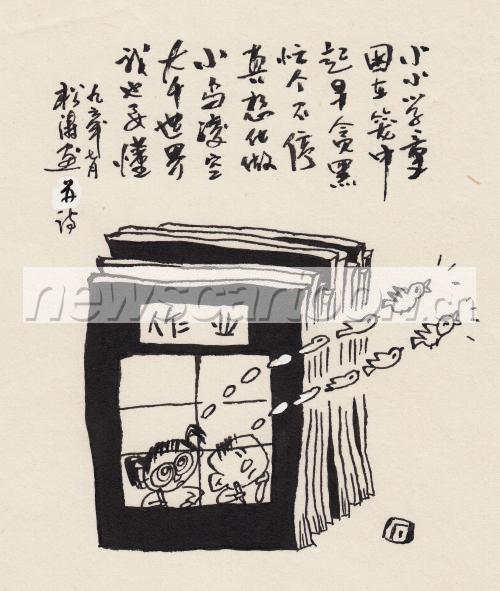 小小学童
困在笼中
起早贪黑
忙个不停
真想化做
小鸟凌空
大千世界
我也要懂
七月
松涛画并诗
作业
newscartoon.cn